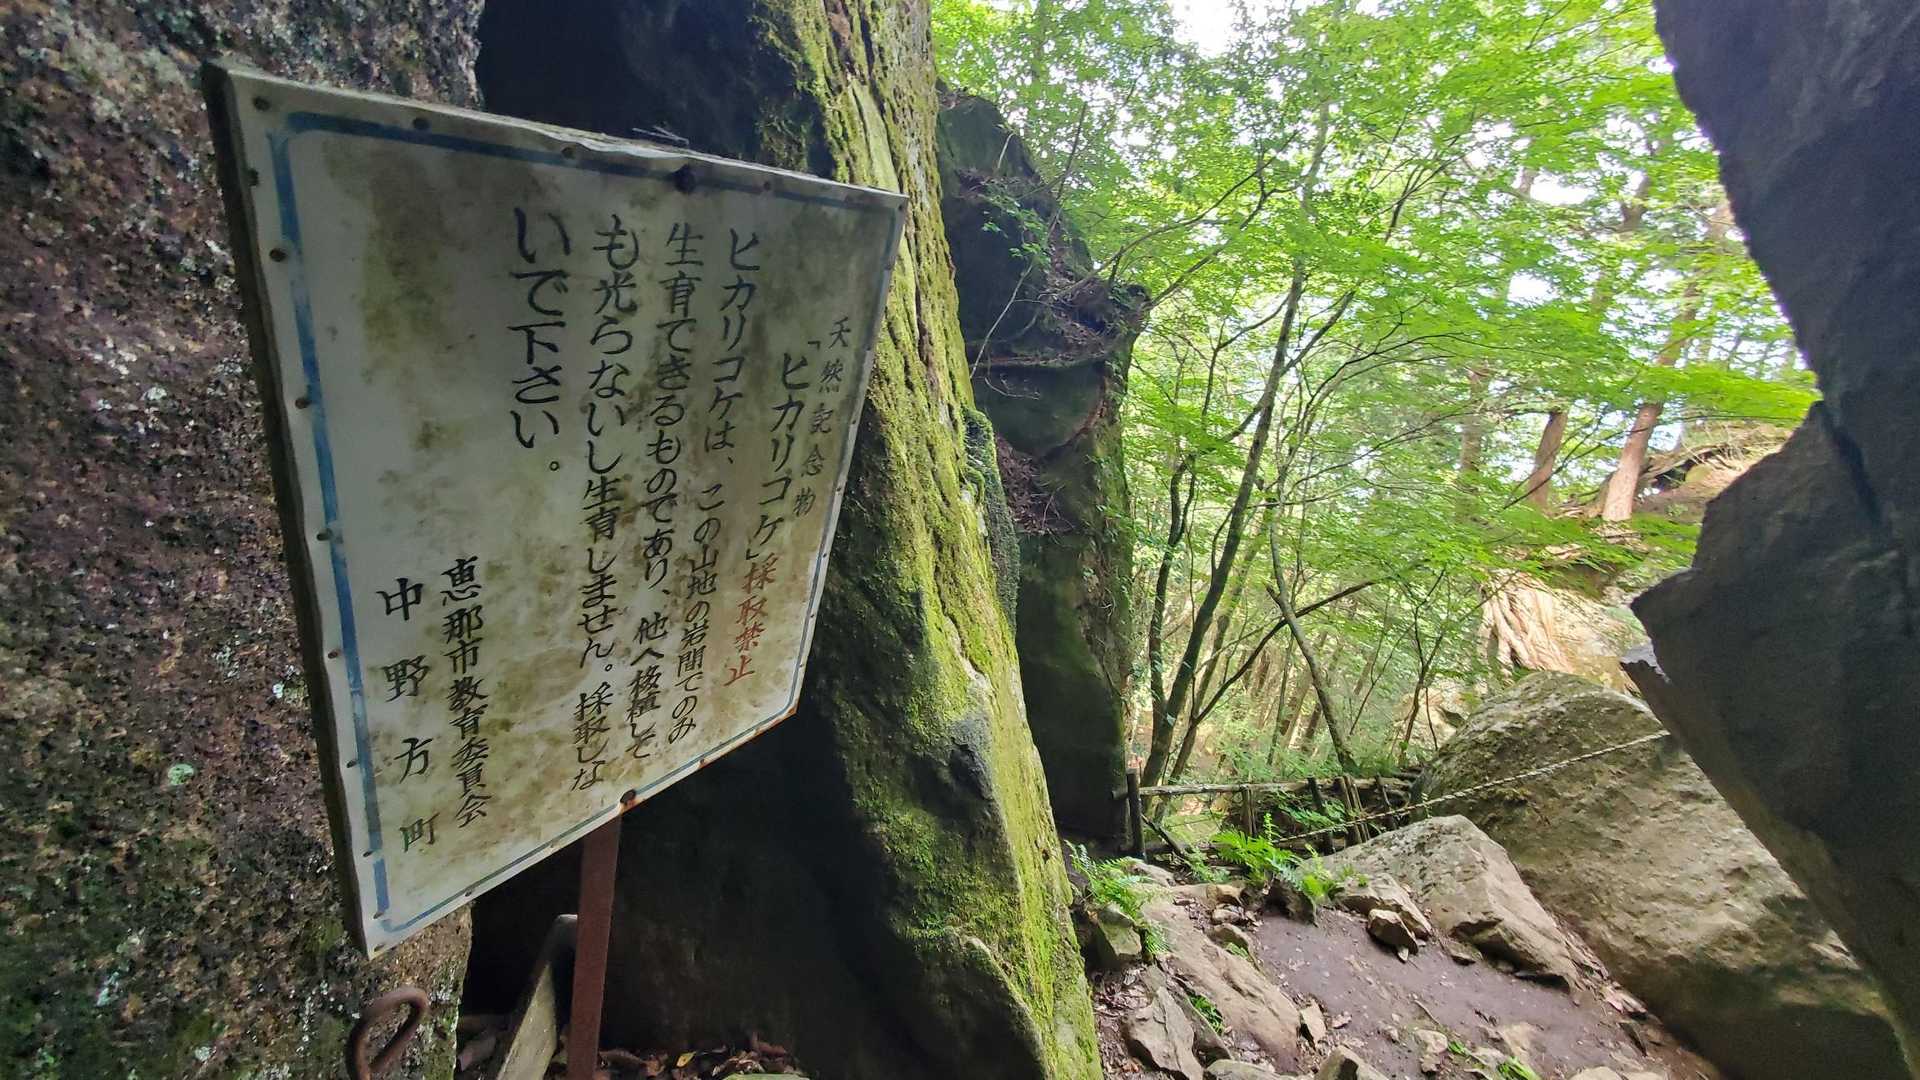 天然記念物
「ヒカリコケ」採取禁止
ヒカリコケは、この山地の岩間でのみ
生育できるものであり、他へ移植しそ
も光らないし生育しません。採取しな
いで下さい。
恵那市教育委員会
中野方町